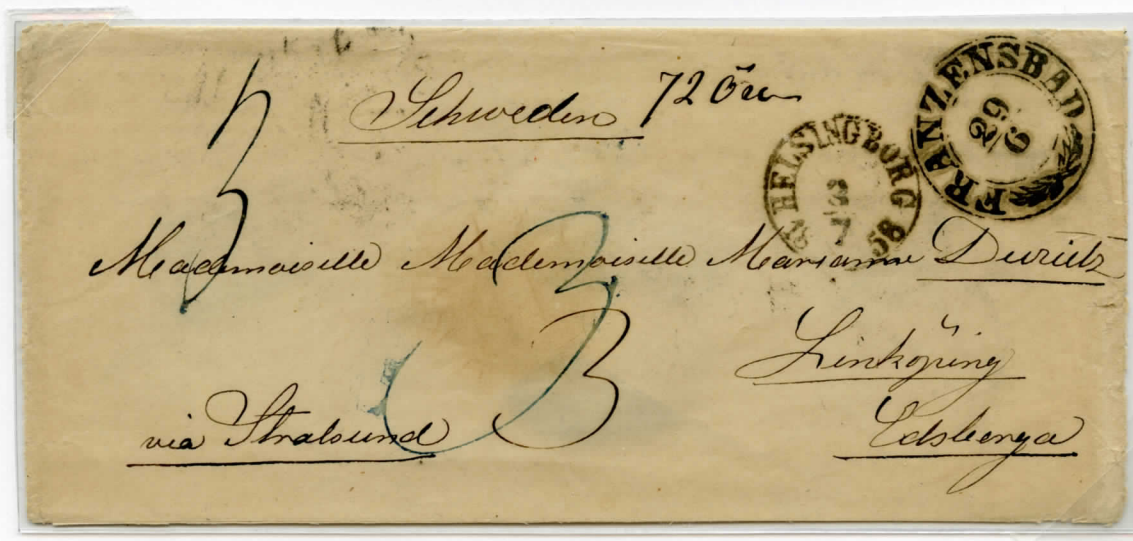 Schweden 72 Öre
FRANZENSBAD
29/6
HELSINGBORG
3
7
58
3
Mademoiselle Mademoiselle Marianne
3
3
Linköping
via Stralsund